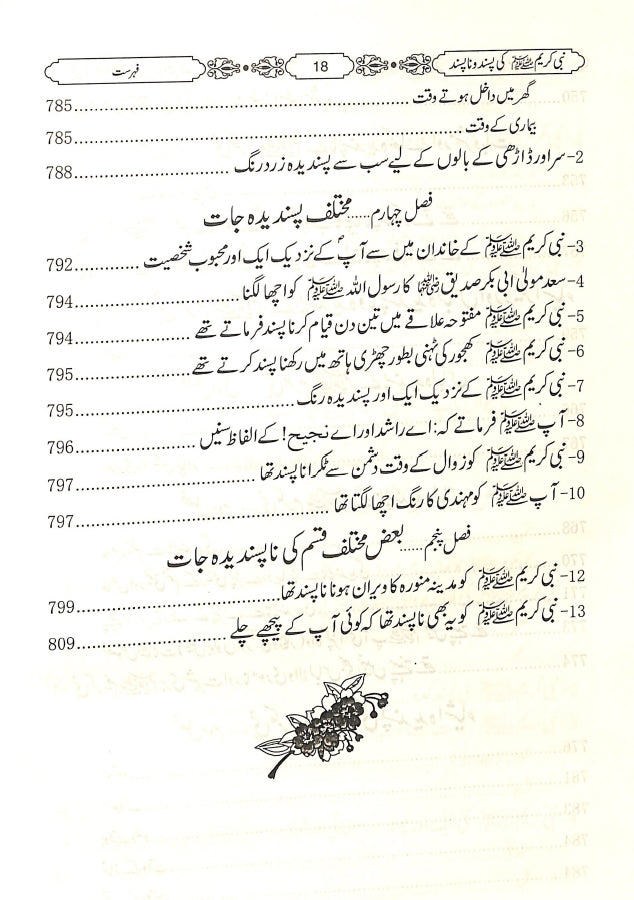 نبی کریم ﷺ کی پسند و ناپسند 18 فہرست
گھر میں داخل ہوتے وقت ........ 785
بیماری کے وقت ........ 785
2- سر اور داڑھی کے بالوں کے لیے سب سے پسندیدہ زرد رنگ ........ 788
فصل چہارم ...... مختلف پسندیدہ جات
3- نبی کریم ﷺ کے خاندان میں سے آپؐ کے نزدیک ایک اور محبوب شخصیت ........ 792
4- سعد مولیٰ ابی بکر صدیق رضی اللہ عنہ کا رسول اللہ ﷺ کو اچھا لگنا ........ 794
5- نبی کریم ﷺ مفتوحہ علاقے میں تین دن قیام کرنا پسند فرماتے تھے ........ 794
6- نبی کریم ﷺ کھجور کی ٹہنی بطور چھڑی ہاتھ میں رکھنا پسند کرتے تھے ........ 795
7- نبی کریم ﷺ کے نزدیک ایک اور پسندیدہ رنگ ........ 795
8- آپ ﷺ فرماتے کہ: اے راشد اور اے نجیح! کے الفاظ سنیں ........ 796
9- نبی کریم ﷺ کو زوال کے وقت دشمن سے ٹکرانا پسند تھا ........ 797
10- آپ ﷺ کو مہندی کا رنگ اچھا لگتا تھا ........ 797
فصل پنجم ...... بعض مختلف قسم کی ناپسندیدہ جات
12- نبی کریم ﷺ کو مدینہ منورہ کا ویران ہونا ناپسند تھا ........ 799
13- نبی کریم ﷺ کو یہ بھی ناپسند تھا کہ کوئی آپ کے پیچھے چلے ........ 809